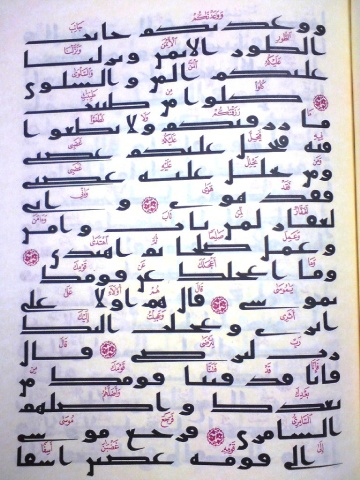 ووعدنكم جانب
الطور الايمن ونزلنا
عليكم المن والسلوى
كلوا من طيبت
ما رزقنكم ولا تطغوا
فيه فيحل عليكم غضبي
ومن يحلل عليه غضبي
فقد هوى واني
لغفار لمن تاب وامن
وعمل صلحا ثم اهتدى
وما اعجلك عن قومك
يموسى قال هم اولا على
اثري وعجلت اليك
رب لترضى قال
فانا قد فتنا قومك من
بعدك واضلهم
السامري فرجع موسى
الى قومه غضبن اسفا